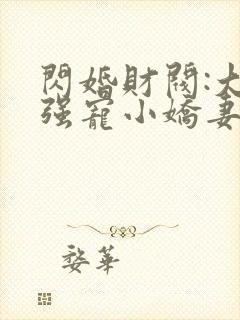 閃婚財閥:大
强寵小嬌妻
婺華